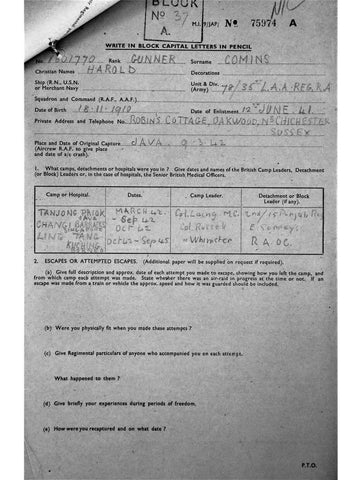 BLOCK
No 37
A.
M.I.9/JAP/ No 75974 A
WRITE IN BLOCK CAPITAL LETTERS IN PENCIL
No. 1801770 Rank GUNNER Surname COMINS
Christian Names HAROLD Decorations
Ship (R.N., U.S.N. or Merchant Navy Unit & Div. (Army) 78/35th L.A.A. REG. R.A
Squadron and Command (R.A.F., A.A.F.)
Date of Birth 18-11-1910 Date of Enlistment 12th JUNE 41
Private Address and Telephone No. ROBIN'S COTTAGE, OAKWOOD, Nr CHICHESTER
SUSSEX
Place and Date of Original Capture JAVA 9-3-42
(Aircrew R.A.F. to give place
and date of a/c crash).
1. What camps, detachments or hospitals were you in? Give dates and names of the British Camp Leaders, Detachment
(or Block) Leaders or, in the case of hospitals, the Senior British Medical Officers.
Camp or Hospital. Dates. Camp Leader. Detachment or Block Leader (if any).
TANJONG PRIOK MARCH 42 - Sep 42 Col Laing M.C. 2nd/15 Punjab
JAVA
CHANGI OCT 42 Col Russell
LINTANG KUCHING Oct 42 - Sep 45 R.A.O.C.
2. ESCAPES OR ATTEMPTED ESCAPES. (Additional paper will be supplied on request if required).
(a) Give full description and approx. date of each attempt you made to escape, showing how you left the camp, and
from which camp each attempt was made. State whether there was an air-raid in progress at the time or not. If an
escape was made from a train or vehicle the approx. speed and how it was guarded should be included.
(b) Were you physically fit when you made these attempts?
(c) Give Regimental particulars of anyone who accompanied you on each attempt.
What happened to them?
(d) Give briefly your experiences during periods of freedom.
(e) How were you recaptured and on what date?
P.T.O.